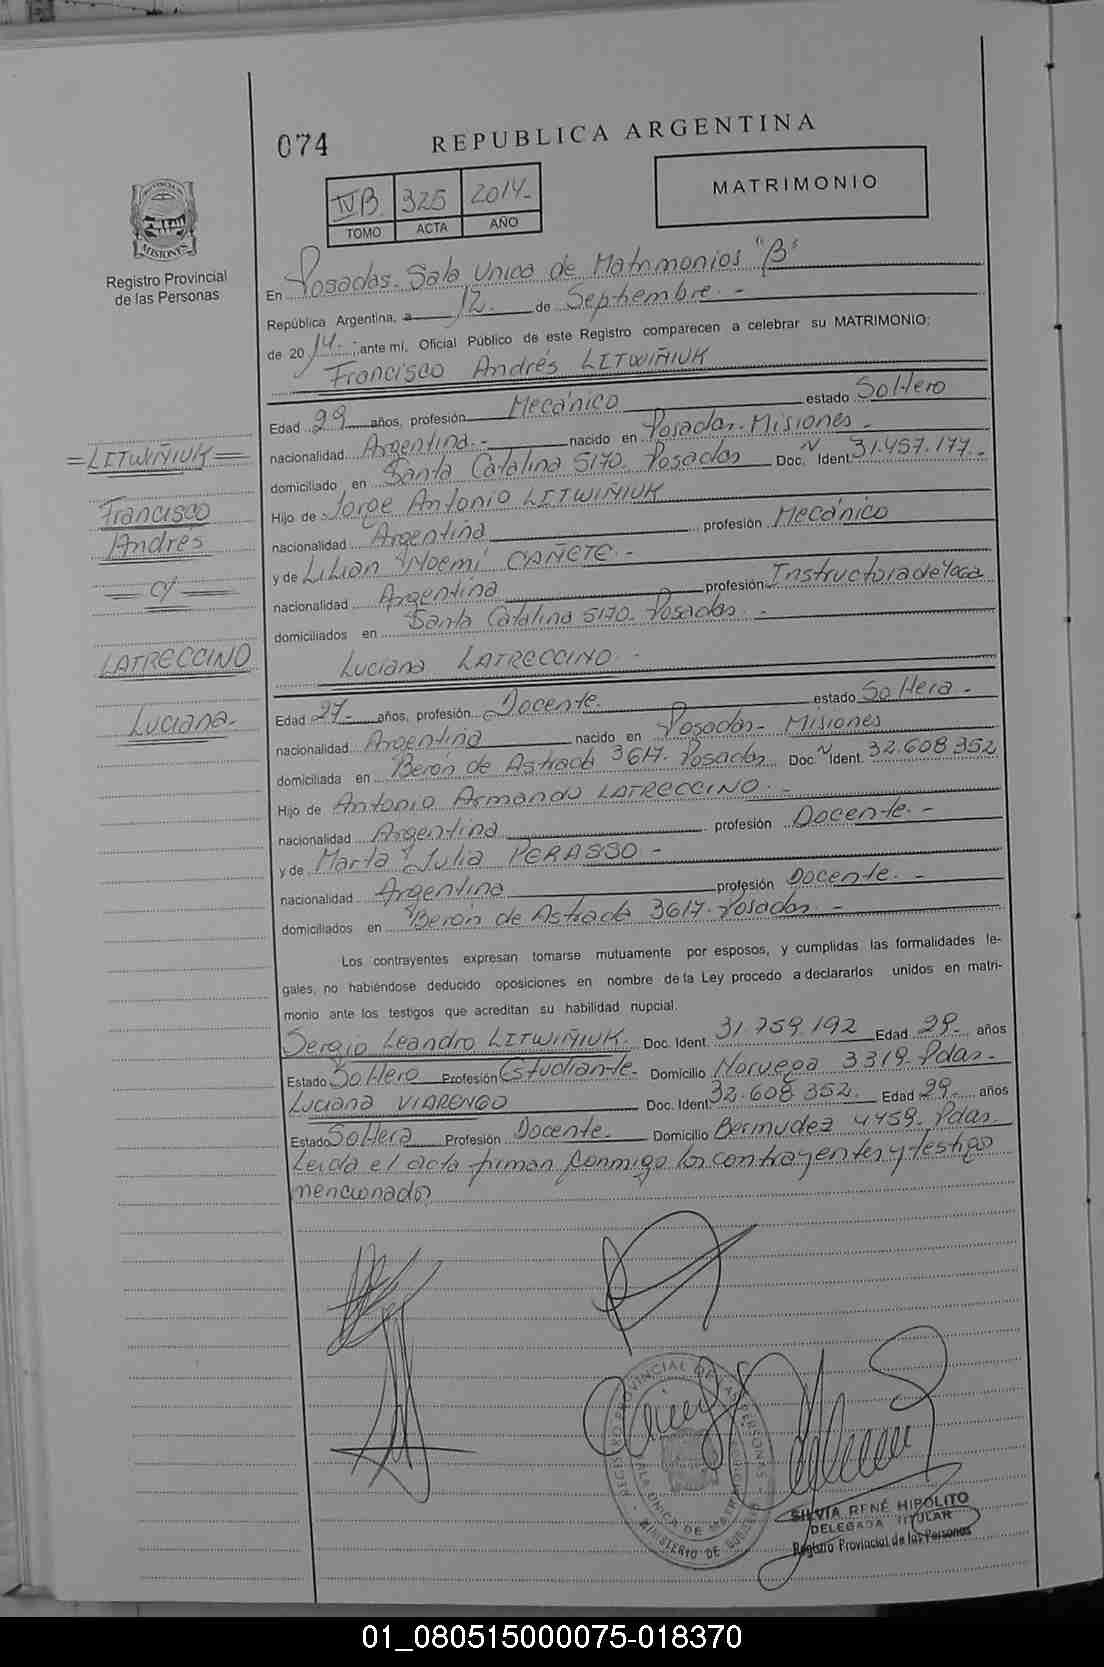 074
REPUBLICA ARGENTINA
IV B 325 2014.-
TOMO ACTA AÑO
MATRIMONIO
PROVINCIA DE MISIONES
Registro Provincial
de las Personas
En Posadas. Sala Unica de Matrimonios "B"
República Argentina, a 12. de Septiembre.-
de 2014.- ;ante mí, Oficial Público de este Registro comparecen a celebrar su MATRIMONIO:
Francisco Andrés LITWIÑIUK
Edad 29 años, profesión Mecánico estado Soltero
nacionalidad Argentina.- nacido en Posadas. Misiones.-
domiciliado en Santa Catalina 5170. Posadas Doc. Nº Ident. 31.457.177.-
Hijo de Jorge Antonio LITWIÑIUK
nacionalidad Argentina profesión Mecánico
y de Lilian Noemí CAÑETE.-
nacionalidad Argentina profesión Instructora de Yoga
domiciliados en Santa Catalina 5170. Posadas.-
Luciana LATRECCINO.-
Edad 27.- años, profesión Docente. estado Soltera.-
nacionalidad Argentina nacido en Posadas- Misiones
domiciliada en Beron de Astrada 3617. Posadas Doc. Nº Ident. 32.608.352
Hijo de Antonio Armando LATRECCINO.-
nacionalidad Argentina profesión Docente.-
y de Marta Julia PERASSO-
nacionalidad Argentina profesión Docente.-
domiciliados en Berón de Astrada 3617. Posadas.-
Los contrayentes expresan tomarse mutuamente por esposos, y cumplidas las formalidades le-
gales, no habiéndose deducido oposiciones en nombre de la Ley procedo a declararlos unidos en matri-
monio ante los testigos que acreditan su habilidad nupcial.
Sergio Leandro LITWIÑIUK. Doc. Ident. 31.759.192 Edad 29.- años
Estado Soltero Profesión Estudiante. Domicilio Noruega 3319. Pdas.-
Luciana VIARENGO Doc. Ident. 32.608.352. Edad 29.- años
Estado Soltera Profesión Docente. Domicilio Bermudez 4459. Pdas.
Leida el acta firman conmigo los contrayentes y testigos
mencionados
=LITWIÑIUK=
Francisco
Andrés
= c/ =
LATRECCINO
Luciana-
REGISTRO PROVINCIAL DE LAS PERSONAS
SALA UNICA DE
MINISTERIO DE GOBIERNO
SILVIA RENÉ HIPOLITO
DELEGADA TITULAR
Registro Provincial de las Personas
01_080515000075-018370